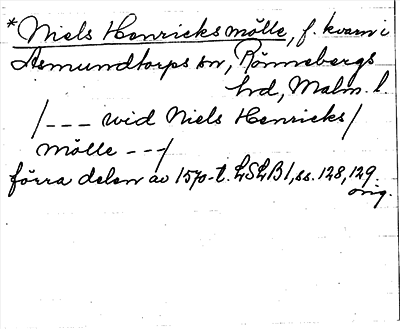 *Niels Henricks mölle, f. kvarn i
Asmundtorps sn, Rönnebergs
hd, Malm. l.
/--- wid Niels Henricks/
mölle ---/
förra delen av 1570-t. LSLB1, ss. 128, 129.
orig.